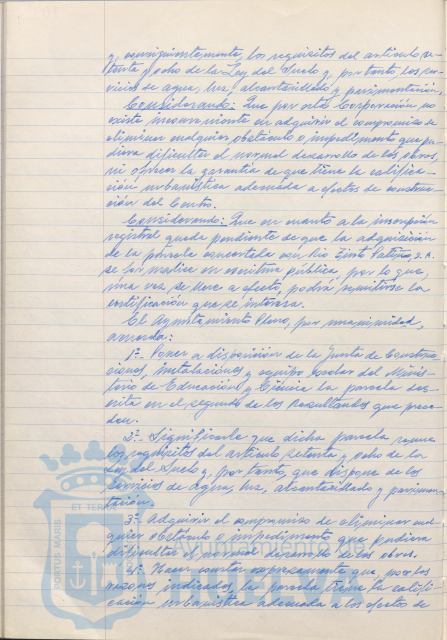 y, consiguientemente, los requisitos del articulo se-
tenta y ocho de la Ley del Suelo y, por tanto, los ser-
vicios de agua, luz, alcantarillado y pavimentación.
Considerando: Que por esta Corporación no
existe inconveniente en adquirir el compromiso de
eliminar cualquier obstáculo o impedimento que pu-
diera dificultar el normal desarrollo de las obras,
ni ofrecer la garantía de que tiene la califica-
ción urbanística adecuada a efectos de construc-
ción del Centro.
Considerando: Que en cuanto a la inscripción
registral queda pendiente de que la adquisición
de la parcela concertada con Rio Tinto Patiño, S.A.
se formalice en escritura pública, por lo que,
una vez se lleve a efecto, podrá remitirse la
certificación que se interesa.
El Ayuntamiento Pleno, por unanimidad,
acuerda:
1º.- Poner a disposición de la Junta de Construc-
ciones, instalaciones y equipo escolar del Minis-
terio de Educación y Ciencia la parcela des-
crita en el segundo de los Resultandos que prece-
den.
2º.- Significarle que dicha parcela reune
los requisitos del articulo setenta y ocho de la
Ley del Suelo y, por tanto, que dispone de los
servicios de agua, luz, alcantarillado y pavimen-
tación.
3º.- Adquirir el compromiso de eliminar cual-
quier obstáculo o impedimento que pudiera
dificultar el normal desarrollo de las obras.
4º.- Hacer constar expresamente que, por las
razones indicadas, la parcela tiene la califi-
cación urbanística adecuada a los efectos de
PORTUS MARIS
ET TERRAE